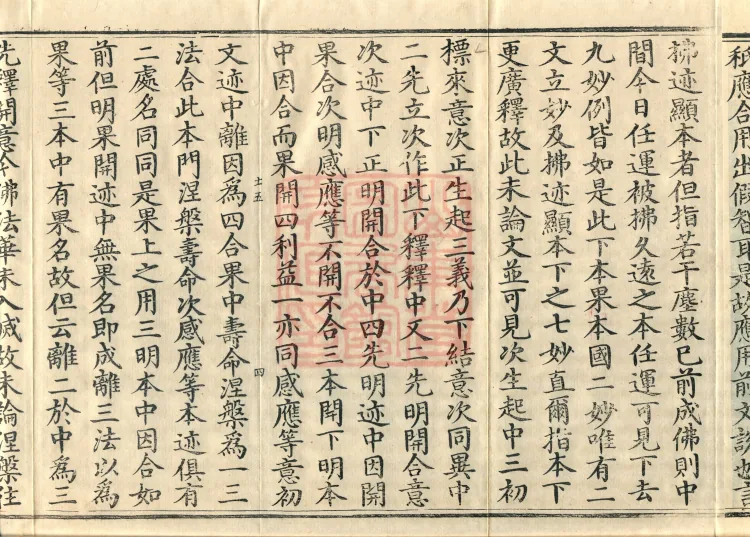 拂迹顯本者但指若干塵數已前成佛則中
間今日任運被拂久遠之本任運可見下去
九妙例皆如是此下本果本國二妙唯有二
文立妙及拂迹顯本下之七妙直爾指本下
更廣釋故此未論文並可見次生起中三初
標來意次正生起三義乃下結意次同異中
二先立次作此下釋釋中又二先明開合意
次迹中下正明開合於中四先明迹中因開
果合次明感應等不開不合三本門下明本
中因合而果開四利益一亦同感應等意初
文迹中離因爲四合果中壽命涅槃爲一三
法合此本門涅槃壽命次感應等本迹俱有
二處名同同是果上之用三明本中因合如
前但明果開迹中無果名即成離三法以爲
果等三本中有果名故但云離二於中爲三
十五
四